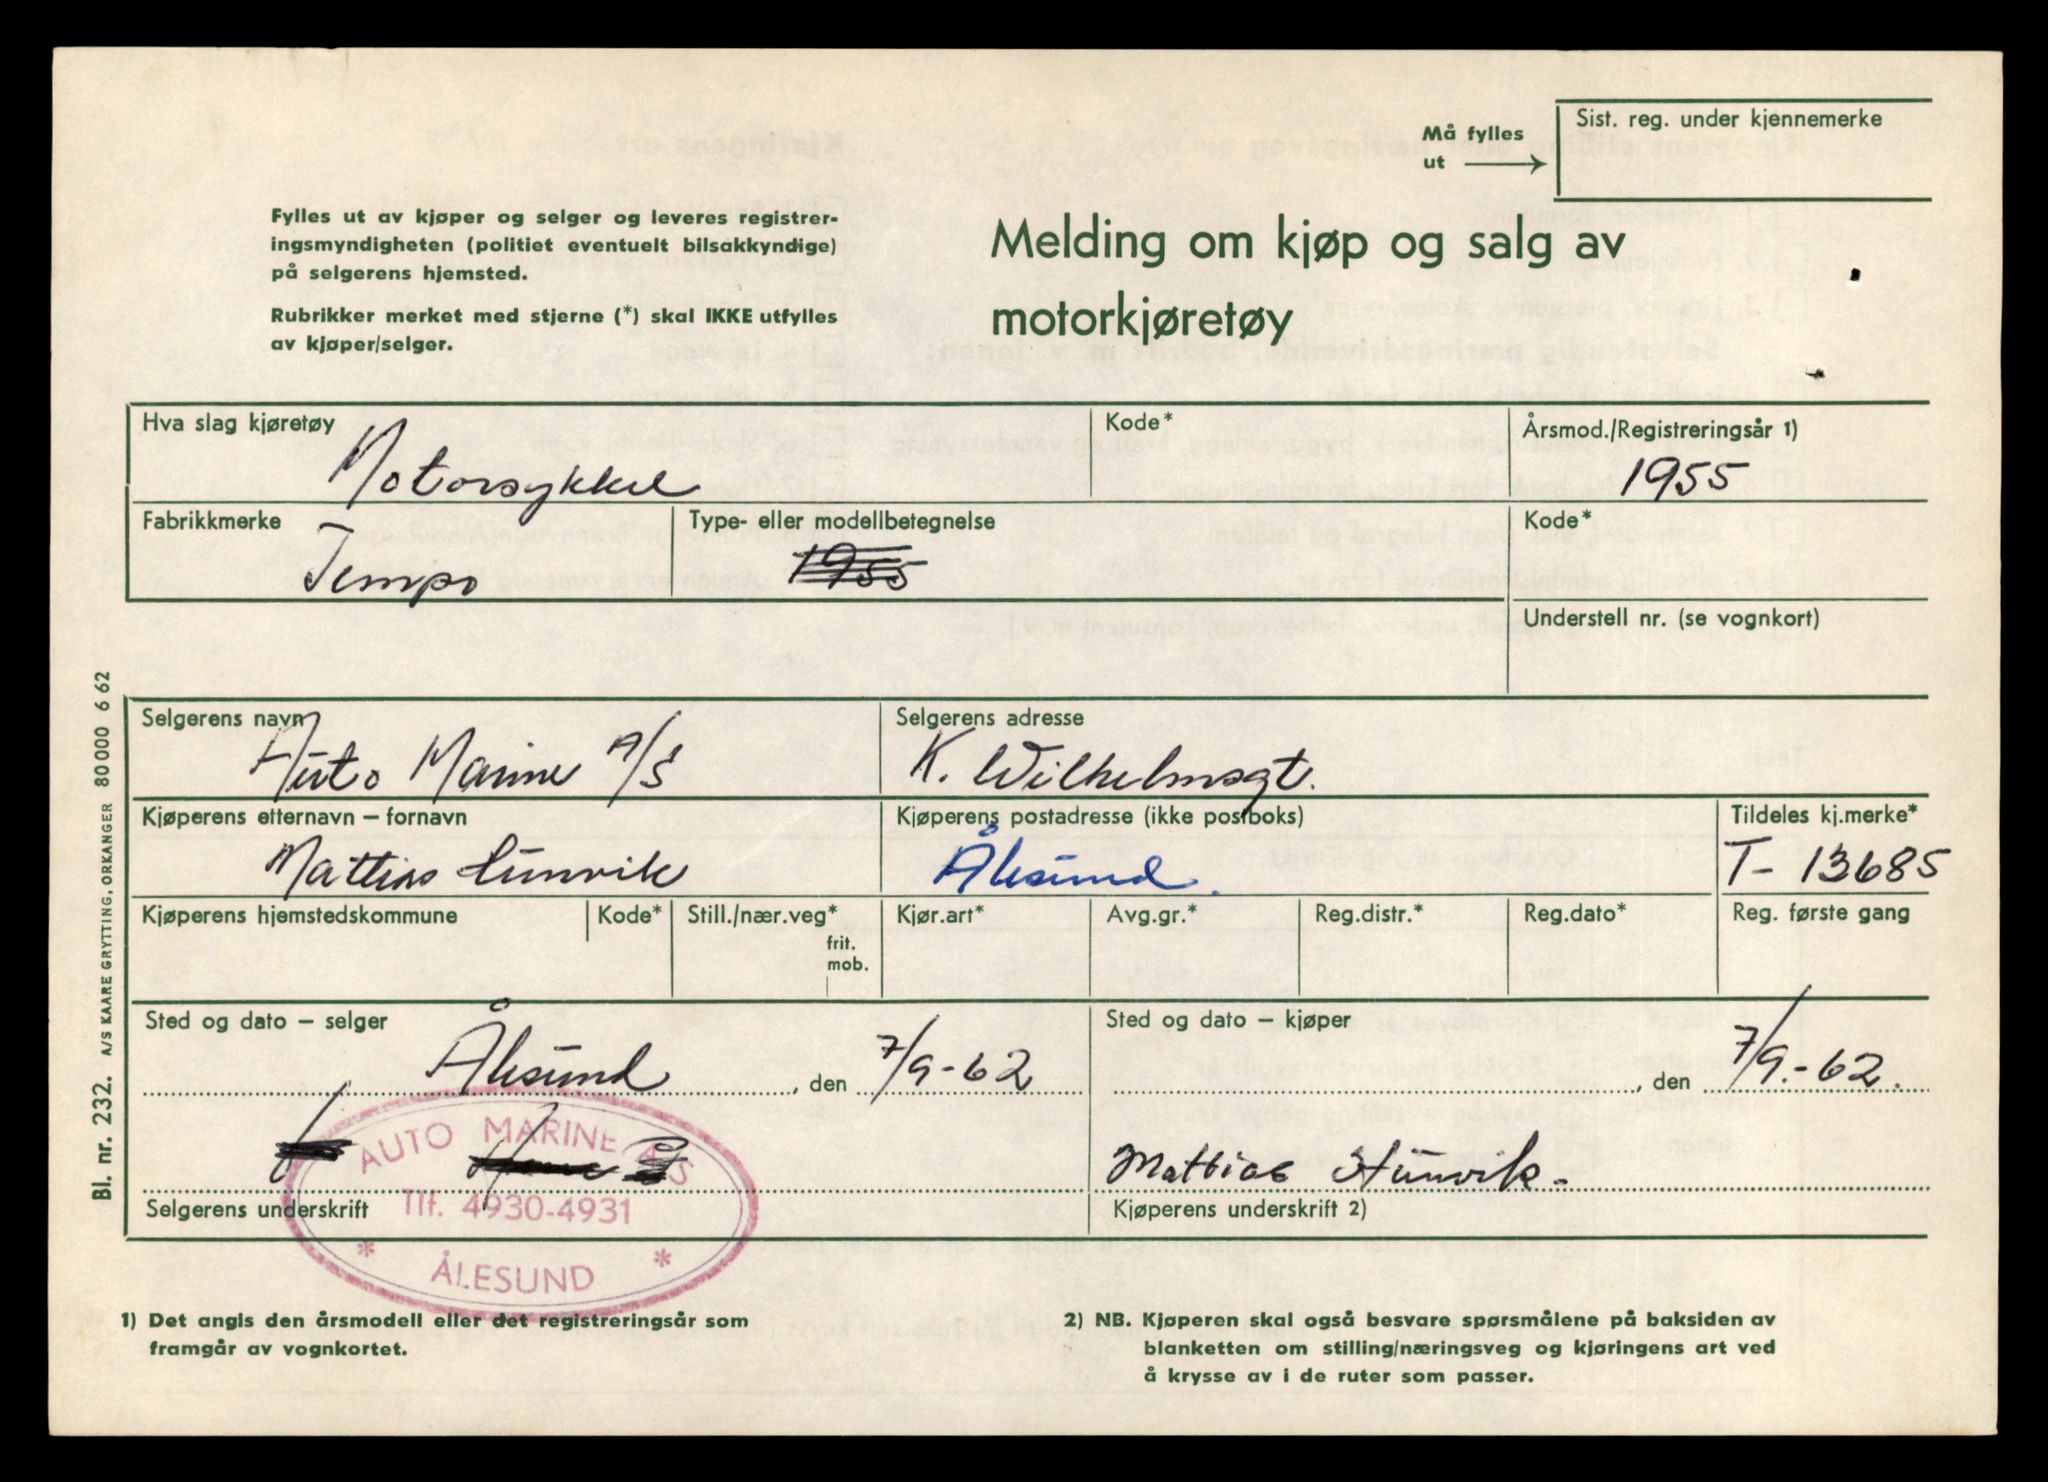 Må fylles
ut
Sist. reg. under kjennemerke
Fylles ut av kjøper og selger og leveres registrer-
ingsmyndigheten (politiet eventuelt bilsakkyndige)
på selgerens hjemsted.
Rubrikker merket med stjerne (*) skal IKKE utfylles
av kjøper/selger.
Melding om kjøp og salg av
motorkjøretøy
Hva slag kjøretøy
Motorsykkel
Kode*
Årsmod./Registreringsår 1)
1955
Fabrikkmerke
Tempo
Type- eller modellbetegnelse
1955
Kode*
Understell nr. (se vognkort)
Selgerens navn
Auto Marine A/S
Selgerens adresse
K. Wilhelmsgt.
Kjøperens etternavn – fornavn
Mattias
Kjøperens postadresse (ikke postboks)
Ålesund.
Tildeles kj.merke*
T- 13685
Kjøperens hjemstedskommune
Kode*
Still./nær.veg*
frit.
mob.
Kjør.art*
Avg.gr.*
Reg.distr.*
Reg.dato*
Reg. første gang
Sted og dato – selger
Ålesund, den 7/9-62
Sted og dato – kjøper
, den 7/9.-62.
AUTO MARINE A/S
Tlf. 4930-4931
* ÅLESUND *
Mattias
Selgerens underskrift
Kjøperens underskrift 2)
1) Det angis den årsmodell eller det registreringsår som
framgår av vognkortet.
2) NB. Kjøperen skal også besvare spørsmålene på baksiden av
blanketten om stilling/næringsveg og kjøringens art ved
å krysse av i de ruter som passer.
Bl. nr. 232. A/S KAARE GRYTTING, ORKANGER 80000 6 62